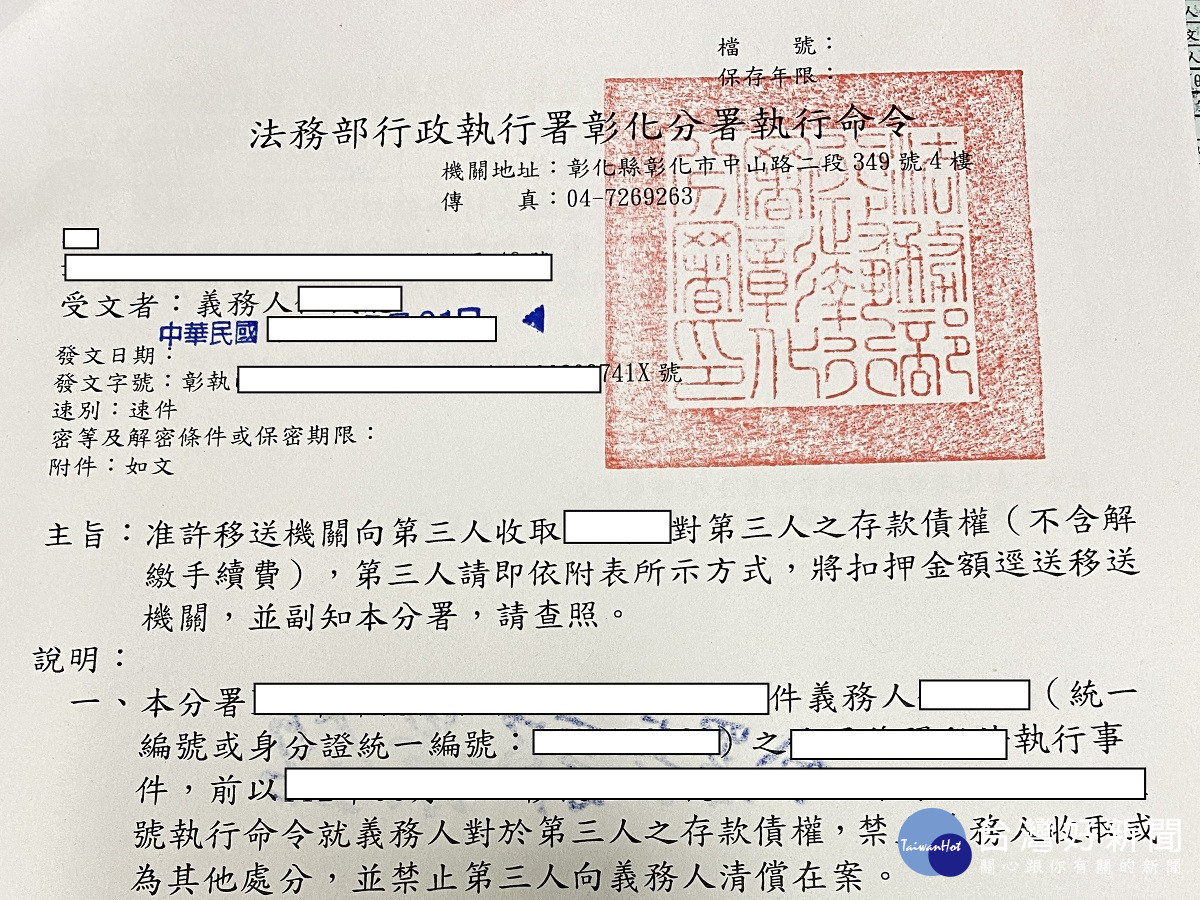 檔　　號：
保存年限：
法務部行政執行署彰化分署執行命令
機關地址：彰化縣彰化市中山路二段349號4樓
傳　　真：04-7269263
受文者：義務人
中華民國
發文日期：
發文字號：彰執 741X號
速別：速件
密等及解密條件或保密期限：
附件：如文
主旨：准許移送機關向第三人收取 對第三人之存款債權（不含解
繳手續費），第三人請即依附表所示方式，將扣押金額逕送移送
機關，並副知本分署，請查照。
說明：
一、本分署 件義務人 （統一
編號或身分證統一編號： ）之 執行事
件，前以
號執行命令就義務人對於第三人之存款債權，禁 務人收取或
為其他處分，並禁止第三人向義務人清償在案。
法務部行政執行署彰化分署印
TaiwanHot
台灣好新聞
關心跟你有關的新聞